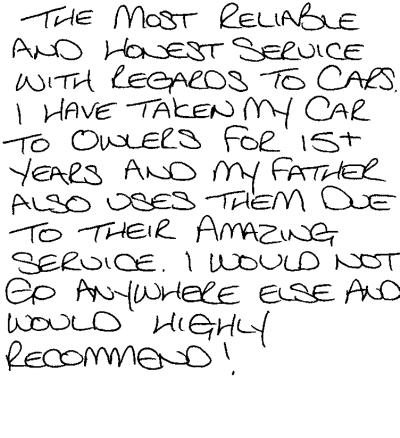 THE MOST RELIABLE
AND HONEST SERVICE
WITH REGARDS TO CARS.
I HAVE TAKEN MY CAR
TO OWLERS FOR 15+
YEARS AND MY FATHER
ALSO USES THEM DUE
TO THEIR AMAZING
SERVICE. I WOULD NOT
GO ANYWHERE ELSE AND
WOULD HIGHLY
RECOMMEND!